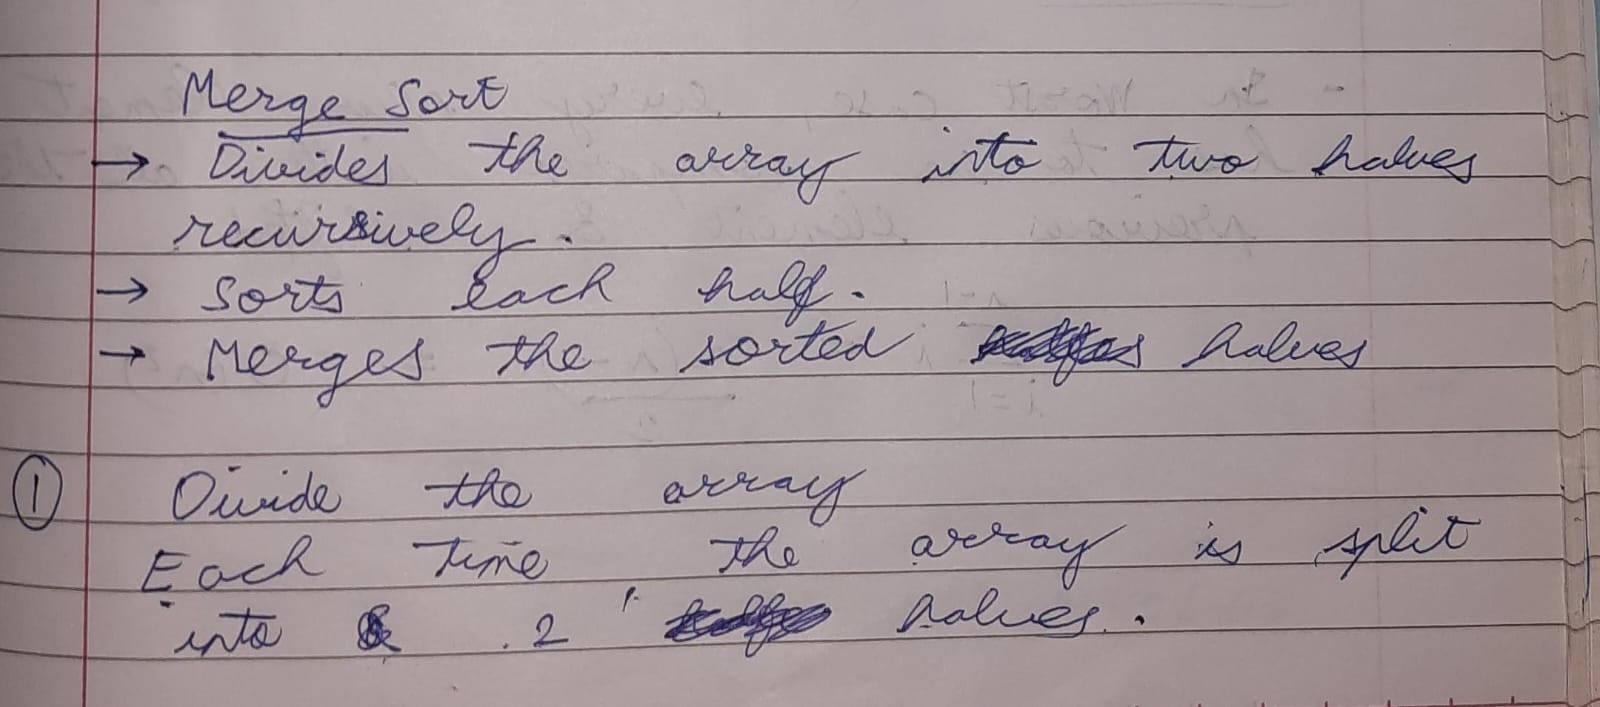 Merge Sort
→ Divides the array into two halves
recursively.
→ Sorts each half.
→ Merges the sorted halves
① Divide the array
Each time the array is split
into 2 halves.